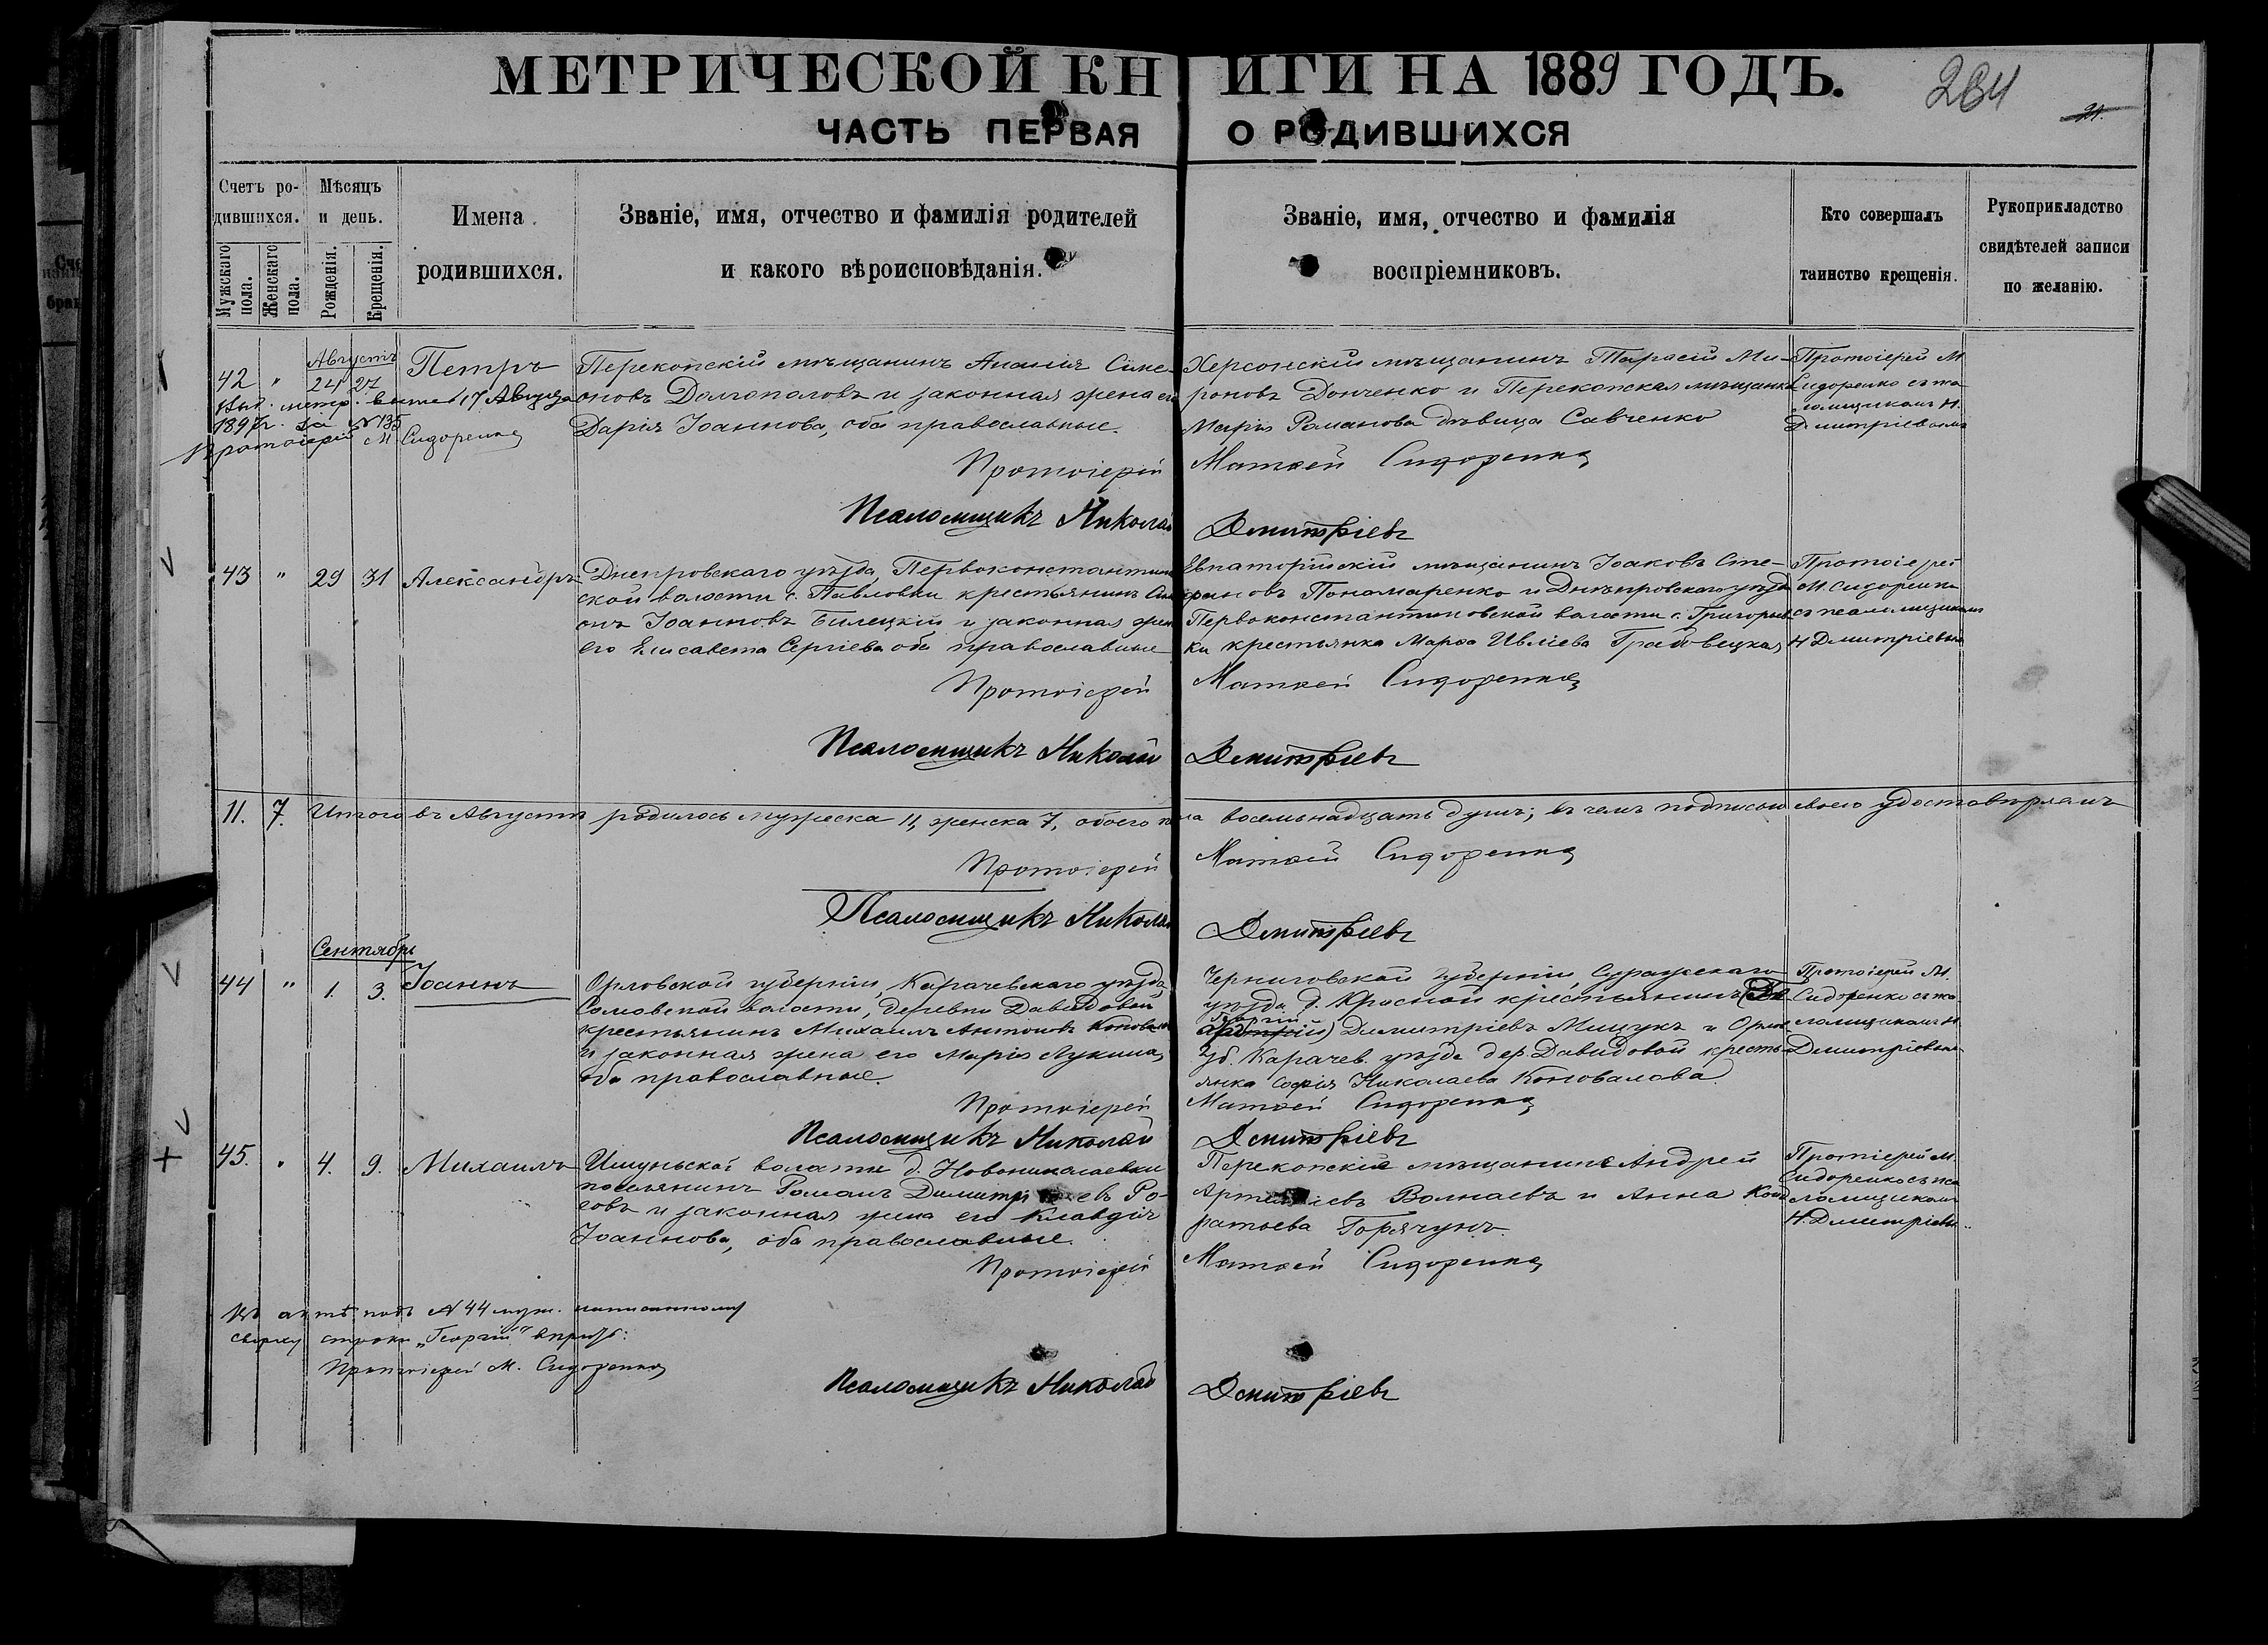 МЕТРИЧЕСКОЙ КНИГИ НА 1889 ГОДЪ.
284
21.
ЧАСТЬ ПЕРВАЯ О РОДИВШИХСЯ
Счетъ ро-
дившихся.
Мужскаго пола.
Женскаго пола.
Мѣсяцъ
и день.
Рожденія.
Крещенія.
Имена
родившихся.
Званіе, имя, отчество и фамилія родителей
и какого вѣроисповѣданія.
Званіе, имя, отчество и фамилія
воспріемниковъ.
Кто совершалъ
таинство крещенія.
Рукоприкладство
свидѣтелей записи
по желанію.
Августъ
42 " 24 27 Петръ
Выд. метр. 17 Августа
1897 г. за №135
Протоіерей М Сидоренко
Перекопскій мѣщанинъ Ананія Симе-
оновъ Долгополовъ и законная жена его
Дарія Іоаннова, оба православные.
Херсонскій мѣщанинъ Тарасій Ми-
роновъ Донченко и Перекопская мѣщанка
Марія Романова дѣвица Савченко
Протоіерей М.
Сидоренко съ пса-
ломщикомъ Н.
Дмитріевымъ
Протоіерей Матѳей Сидоренко
Псаломщикъ Николай Дмитріевъ
43 " 29 31 Александръ
Днепровскаго уѣзда, Первоконстантинов
ской волости с. Павловки крестьянинъ Сим
онъ Іоанновъ Билецкій и законная жена
его Елисавета Сергіева оба православные
Евпаторійскій мѣщанинъ Іоаковъ Сте-
фановъ Понамаренко и Днѣпровскаго уѣзда
Первоконстантиновской волости с. Григорьев
ки крестьянка Марѳа Ивлiева Грабовецкая
Протоіерей
М. Сидоренко
съ псаломщикомъ
Н Дмитріевымъ
Протоіерей Матѳей Сидоренко
Псаломщикъ Николай Дмитріевъ
11. 7. Итого въ Августѣ родилось мужеска 11, женска 7, обоего пола восемьнадцать душъ; въ чемъ подписомъ своего удостовѣряемъ
Протоіерей Матѳей Сидоренко
Псаломщикъ Николай Дмитріевъ
Сентябрь
44 " 1. 3. Іоаннъ
Орловской губерніи, Карачевскаго уѣзда,
Самовской волости, деревни Давидовой
крестьянинъ Михаилъ Антоновъ Коновалов
и законная жена его Марія Лукина,
оба православные.
Черниговской губерніи, Суражскаго
уѣзда д. Красной крестьянинъ
Георгій
Димитріевъ Мищукъ и Орлов
губ. Карачев. уѣзда дер. Давидовой кресть-
янка Софія Николаева Коновалова.
Протоіерей М.
Сидоренко съ пса
ломщикомъ Н.
Дмитріевымъ
Протоіерей Матѳей Сидоренко
Псаломщикъ Николай Дмитріевъ
45. " 4. 9. Михаилъ
Ишуньской волости д. Новониколаевки
поселянинъ Романъ Димитріевъ Ро-
говъ и законная жена его Клавдія
Іоаннова, оба православные.
Перекопскіе мѣщанинъ Андрей
Артеміевъ Волнаевъ и Анна Конд
ратьева Горячунъ.
Протіерей М.
Сидоренко съ пса
ломщикомъ
Н. Дмитріевымъ
Протоіерей Матѳей Сидоренко
Въ актѣ подъ № 44 муж. написанному
сверху строки „Георгій" вѣрить:
Протоіерей М. Сидоренко
Псаломщикъ Николай Дмитріевъ